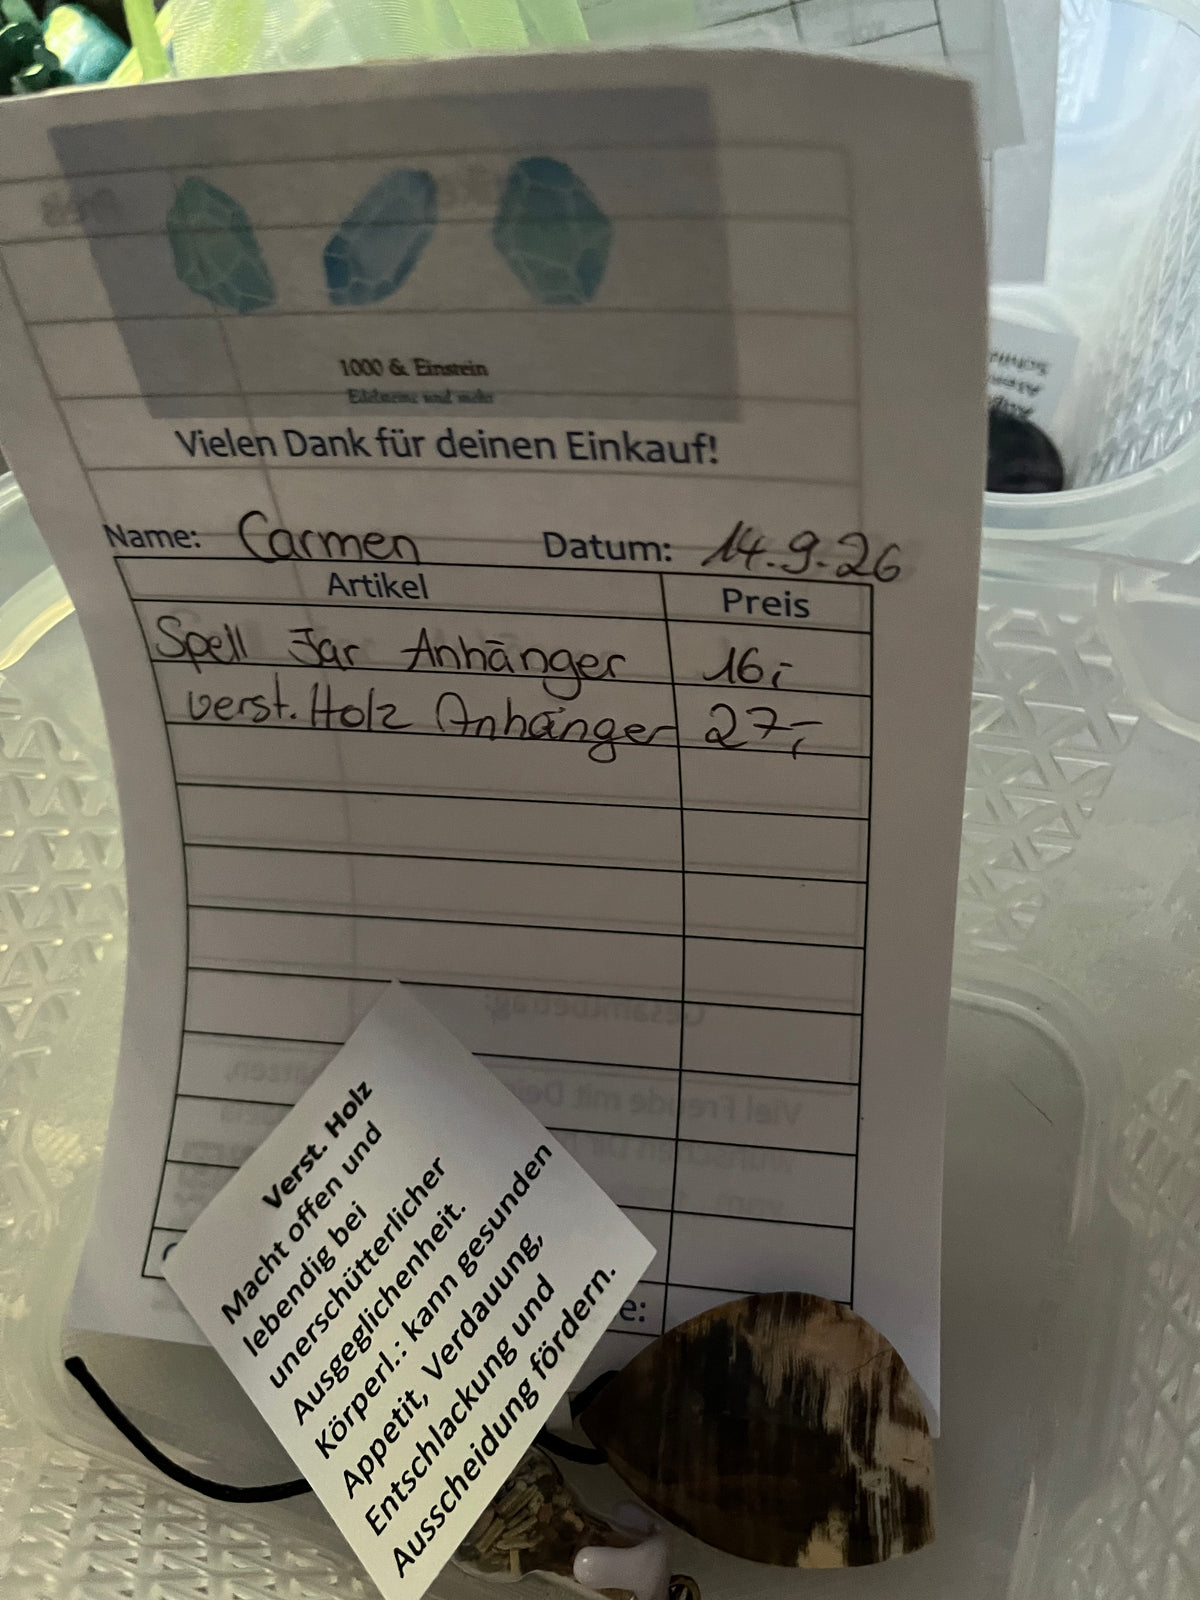 1000 & Einstein
Edelsteine und mehr
Vielen Dank für deinen Einkauf!
Name: Carmen Datum: 14.9.26
Artikel Preis
Spell Jar Anhänger 16,-
verst. Holz Anhänger 27,-
Gesamtbetrag:
Viel Freude mit
e:
Verst. Holz
Macht offen und
lebendig bei
unerschütterlicher
Ausgeglichenheit.
Körperl.: kann gesunden
Appetit, Verdauung,
Entschlackung und
Ausscheidung fördern.